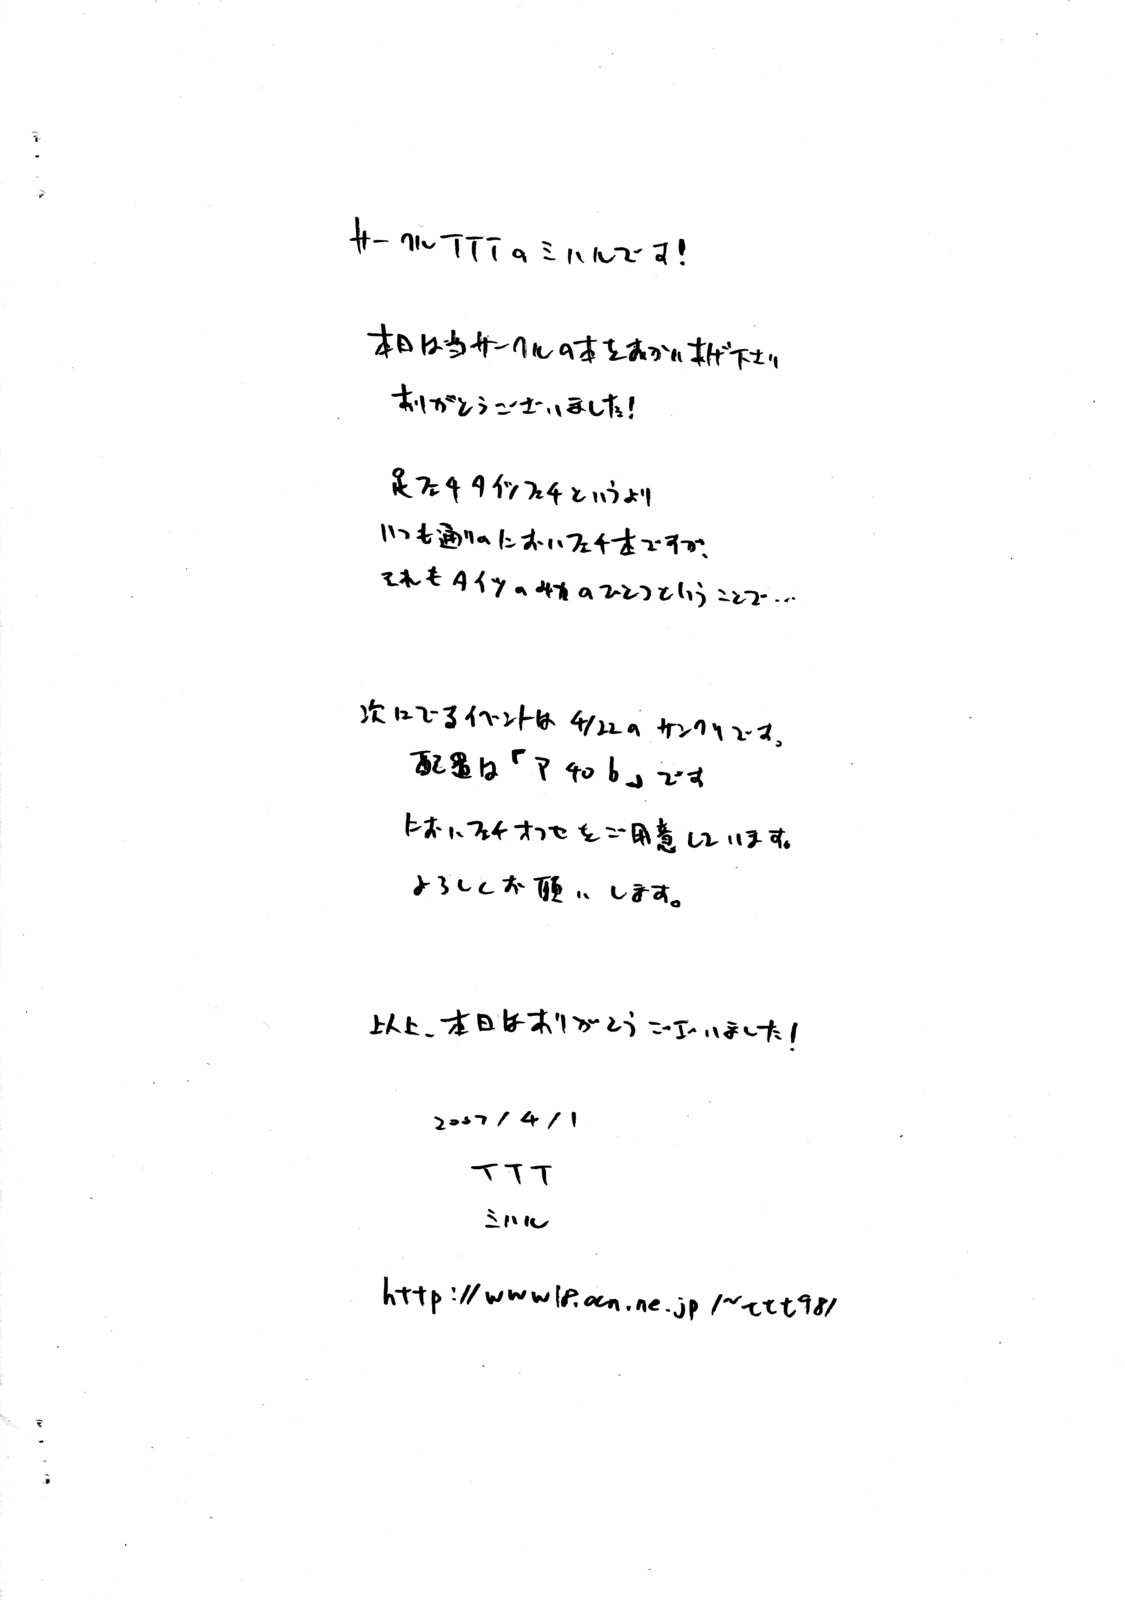 サークルTTTのミハルです!
本日は当サークルの本をおかい求げ下さり
ありがとうございました!
足フェチタイツフェチというより
いつも通りのにおいフェチ本ですが、
それもタイツの味のひとつということで…
次にでるイベントは4/22のサンクリです。
配置は「ア40b」です
においフェチオフセをご用意しています。
よろしくお願いします。
以上、本日はありがとうございました!
2007/4/1
TTT
ミハル
http://www18.ocn.ne.jp/~ttt98/